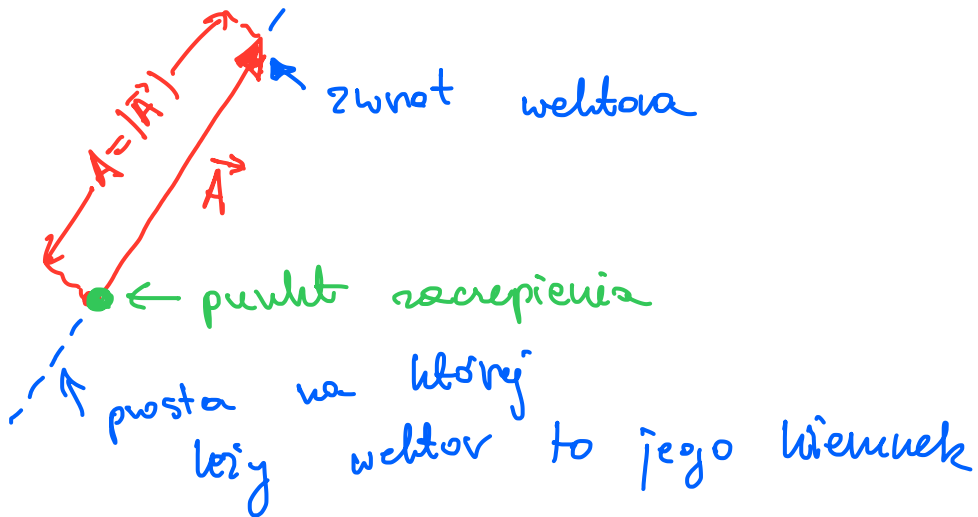 A = |A⃗|
zwrot wektora
A⃗
punkt zaczepienia
prosta na której
leży wektor to jego kierunek